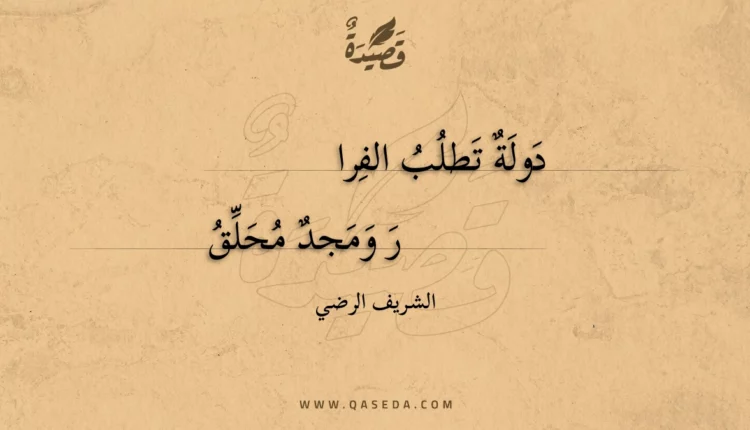 قَصِيْدَةٌ
دَولَةٌ تَطلُبُ الفِرا
رَ وَمَجدٌ مُحَلِّقُ
الشريف الرضي
WWW.QASEDA.COM